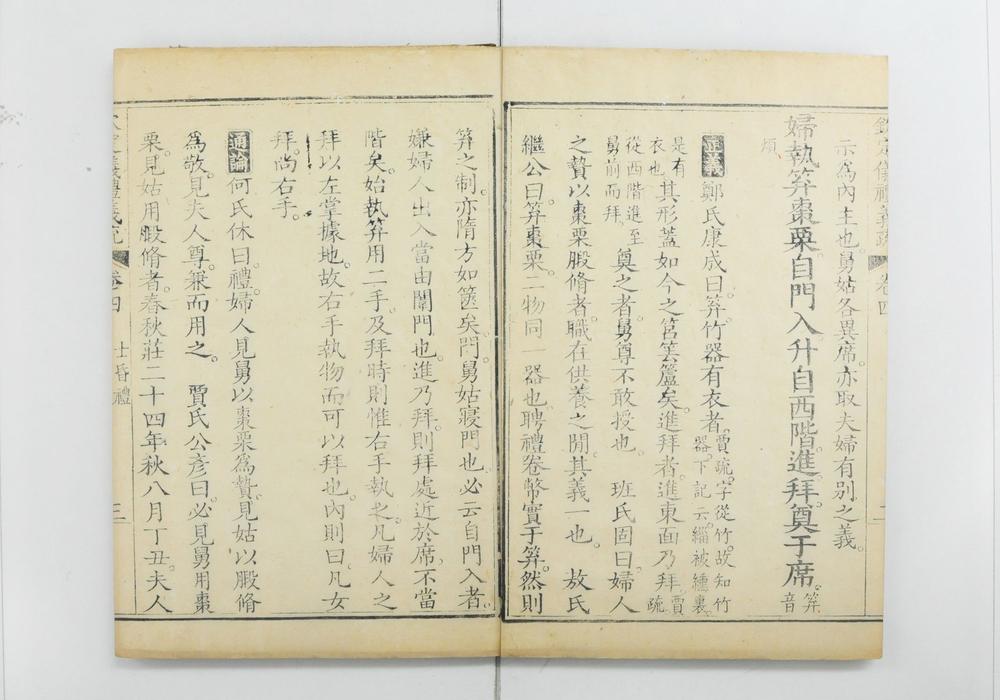 欽定儀禮義疏 卷四
示爲內主也。舅姑各異席。亦取夫婦有別之義。
婦執笲棗栗。自門入。升自西階。進拜。奠于席。笲音
煩
正義 鄭氏康成曰。笲竹器有衣者。賈疏。字從竹。故知竹器。下記云。緇被纁裏。
是有衣也。其形蓋如今之筥𥬔籚矣。進拜者。進東面乃拜。賈疏
從西階進至舅前而拜。奠之者。舅尊不敢授也。 班氏固曰。婦人
之贄以棗栗腶脩者。職在供養之閒。其義一也。 敖氏
繼公曰。笲棗栗。二物同一器也。聘禮卷幣實于笲。然則
笲之制。亦隋方如篋矣。門。舅姑寢門也。必云自門入者。
嫌婦人出入當由闈門也。進乃拜。則拜處近於席。不當
階矣。始執笲用二手。及拜時則惟右手執之。凡婦人之
拜以左掌據地。故右手執物而可以拜也。內則曰。凡女
拜。尚右手。
通論 何氏休曰。禮。婦人見舅以棗栗爲贄。見姑以腶脩
爲敬。見夫人尊。兼而用之。 賈氏公彥曰。必見舅用棗
栗。見姑用腶脩者。春秋莊二十四年秋八月丁丑。夫人
欽定儀禮義疏 卷四 士昏禮 三